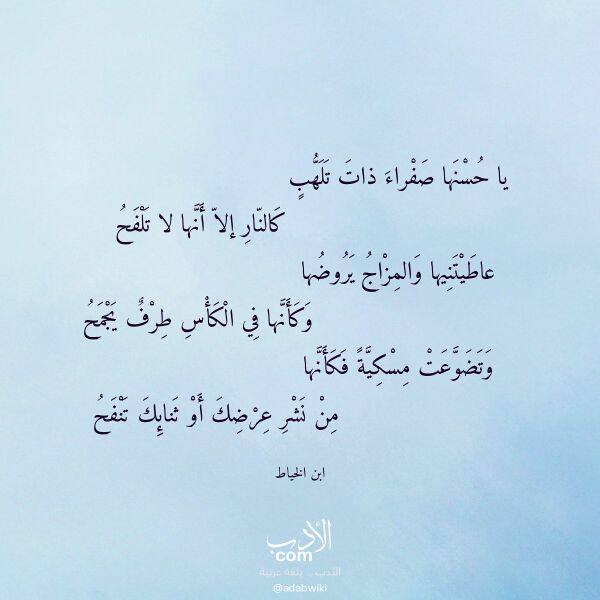 يا حُسْنَها صَفْراءَ ذاتَ تَلَهُّبٍ
كَالنّارِ إلاّ أَنَّها لا تَلْفَحُ
عاطَيْتَنِيها وَالمِزْاجُ يَرُوضُها
وَكَأَنَّها فِي الْكَأْسِ طِرْفٌ يَجْمَحُ
وَتَضَوَّعَتْ مِسْكِيَّةً فَكَأَنَّها
مِنْ نَشْرِ عِرْضِكَ أَوْ ثَنائِكَ تَنْفَحُ
ابن الخياط
الأدب
com
الأدب .. بلغة عربية
@adabwiki